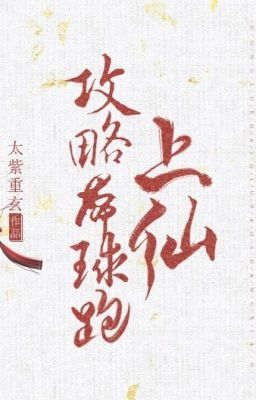 攻略带球跑
上仙
太紫重玄
作品